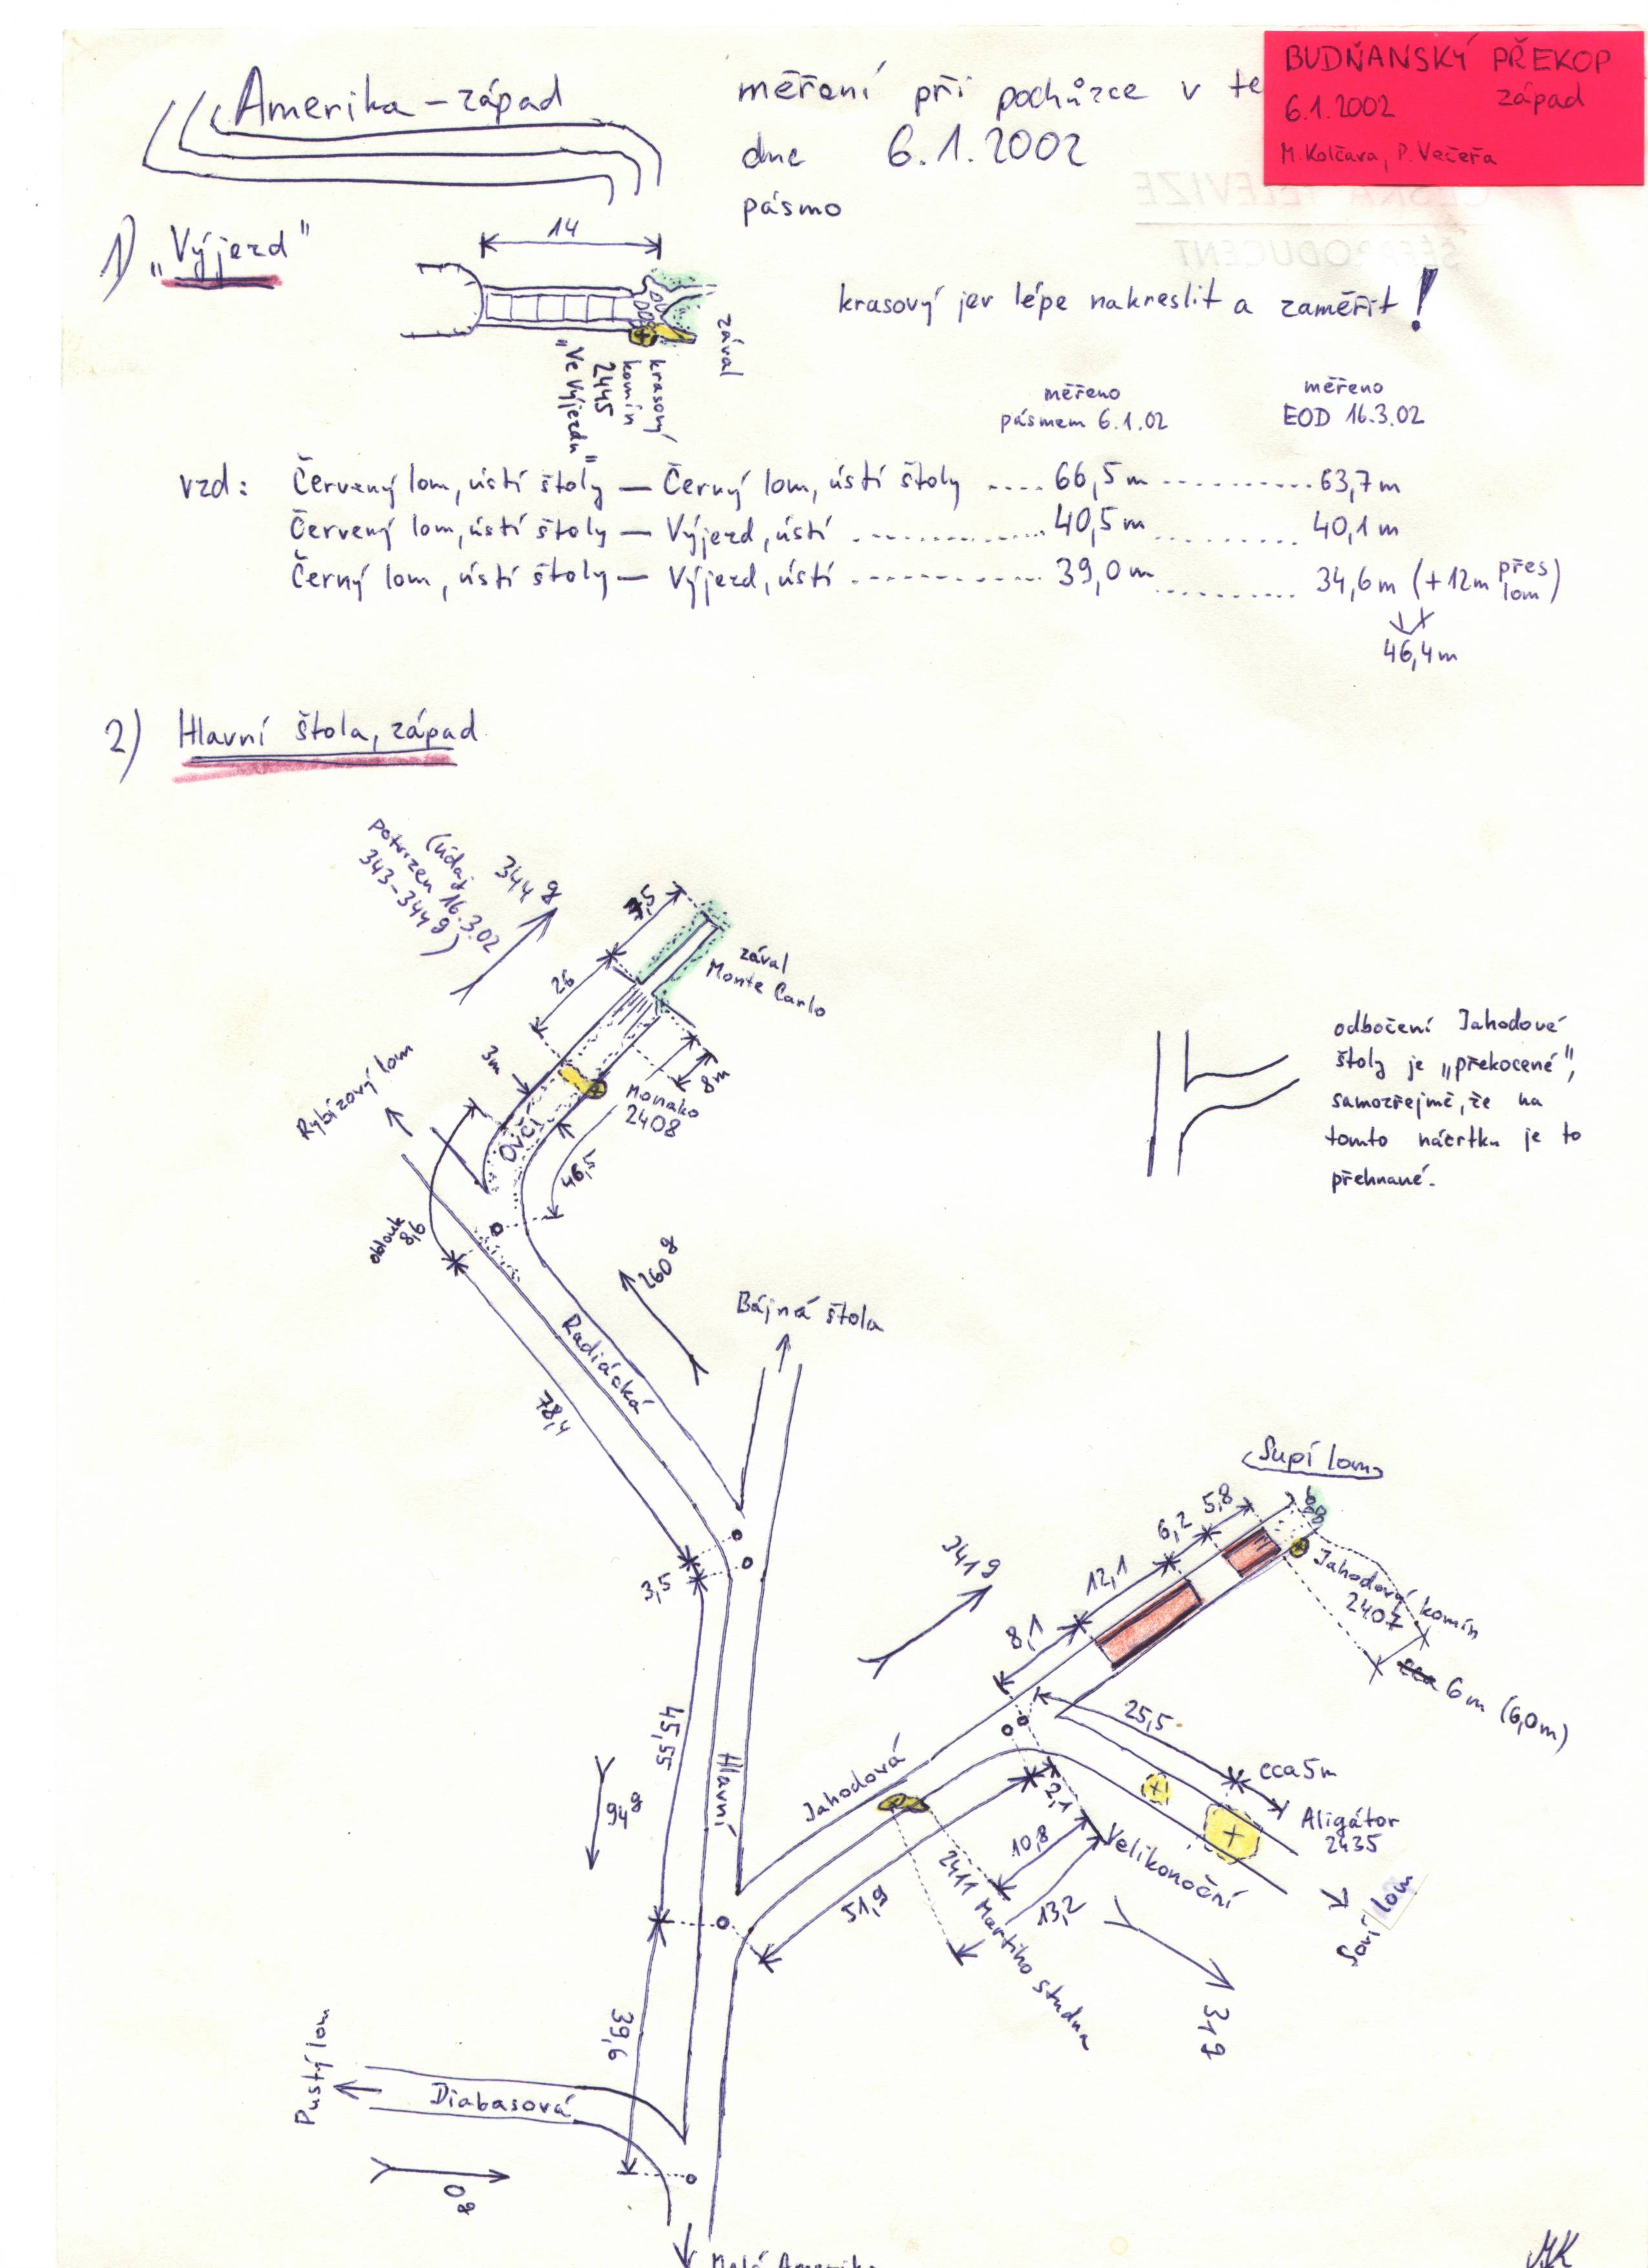 Amerika - západ
měření při pochůzce v te
dne 6.1.2002
pásmo
BUDŇANSKÝ PŘEKOP
6.1.2002 západ
M. Kolčava, P. Večeřa
ČESKÁ TELEVIZE
ŠÉFPRODUCENT
1) „Výjezd"
14
krasový jev lépe nakreslit a zaměřit!
zával
krasový
komín
2445
„Ve Výjezdu"
měřeno
pásmem 6.1.02
měřeno
EOD 16.3.02
vzd: Červený lom, ústí štoly — Černý lom, ústí štoly .... 66,5 m ........... 63,7 m
Červený lom, ústí štoly — Výjezd, ústí ............ 40,5 m ........... 40,1 m
Černý lom, ústí štoly — Výjezd, ústí ............ 39,0 m ........... 34,6 m (+12m přes lom)
46,4 m
2) Hlavní štola, západ
344 g
(údaj
potvrzen 16.3.02
343-344 g)
7,5
26
zával
Monte Carlo
3m
8m
Monako
2408
Ovčí
Rybízový lom
46,5
oblouk
8,6
260 g
Radiácká
78,4
Bájná štola
odbočení Jahodové
štoly je „překocené",
samozřejmě, že na
tomto náčrtku je to
přehnané.
3,5
Supí lom
5,8
6,2
12,1
8,1
341 g
Jahodový komín
2407
cca 6 m (6,0m)
45,55
Hlavní
94 g
Jahodová
25,5
cca 5m
Aligátor
2435
2,1
10,8
Velikonoční
13,2
51,9
2411 Martiho studna
Soví lom
31 g
39,6
Pustý lom
Diabasová
0 g
Malá Amerika
MK